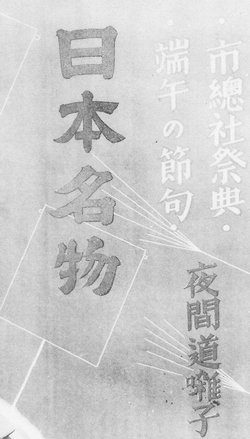 ・市總社祭典・
端午の節句・
日本名物
夜間道囃子